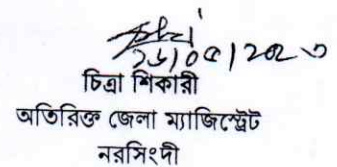 ২৮/০৫/২০২৩
চিত্রা শিকারী
অতিরিক্ত জেলা ম্যাজিস্ট্রেট
নরসিংদী